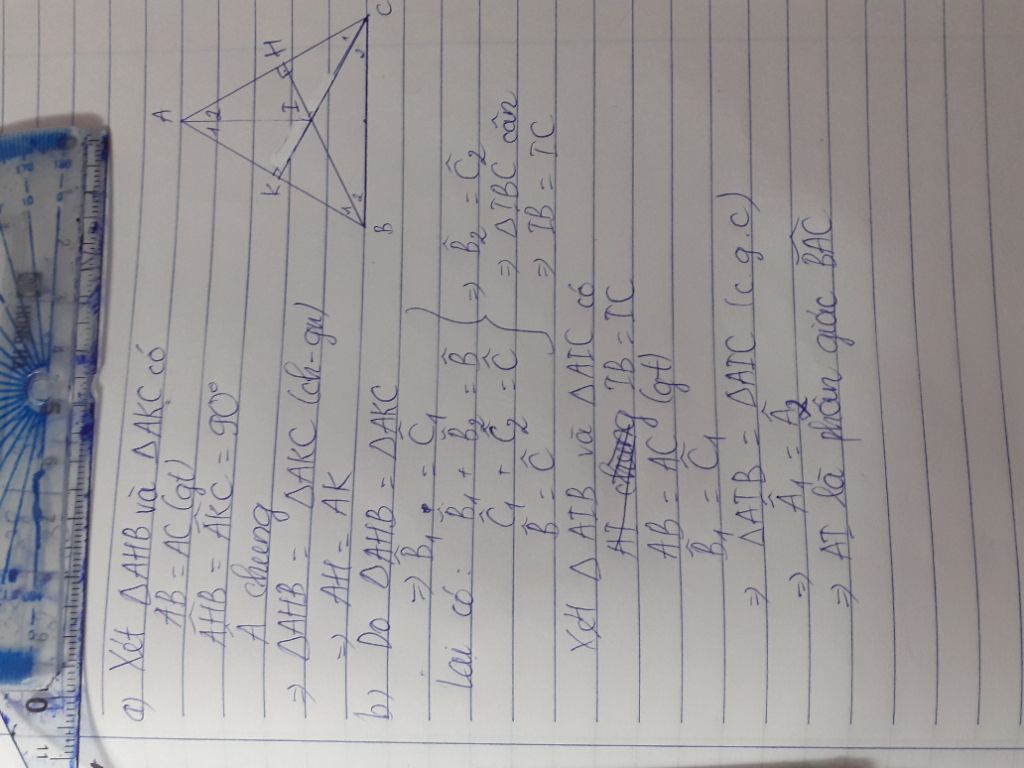 a) Xét ΔAHB và ΔAKC có
AB = AC (gt)
AĤB = AK̂C = 90°
A chung
⇒ ΔAHB = ΔAKC (ch-gn)
⇒ AH = AK
b) Do ΔAHB = ΔAKC
⇒ B̂1 = Ĉ1
Lại có: B̂1 + B̂2 = B̂ } ⇒ B̂2 = Ĉ2
Ĉ1 + Ĉ2 = Ĉ ⇒ ΔIBC cân
B̂ = Ĉ ⇒ IB = IC
Xét Δ AIB và ΔAIC có
AI chung IB = IC
AB = AC (gt)
B̂1 = Ĉ1
⇒ ΔAIB = ΔAIC (c.g.c)
⇒ Â1 = Â2
⇒ AI là phân giác BÂC
A
1 2
K
I
H
1
2
B
1
2
C
0
11
5